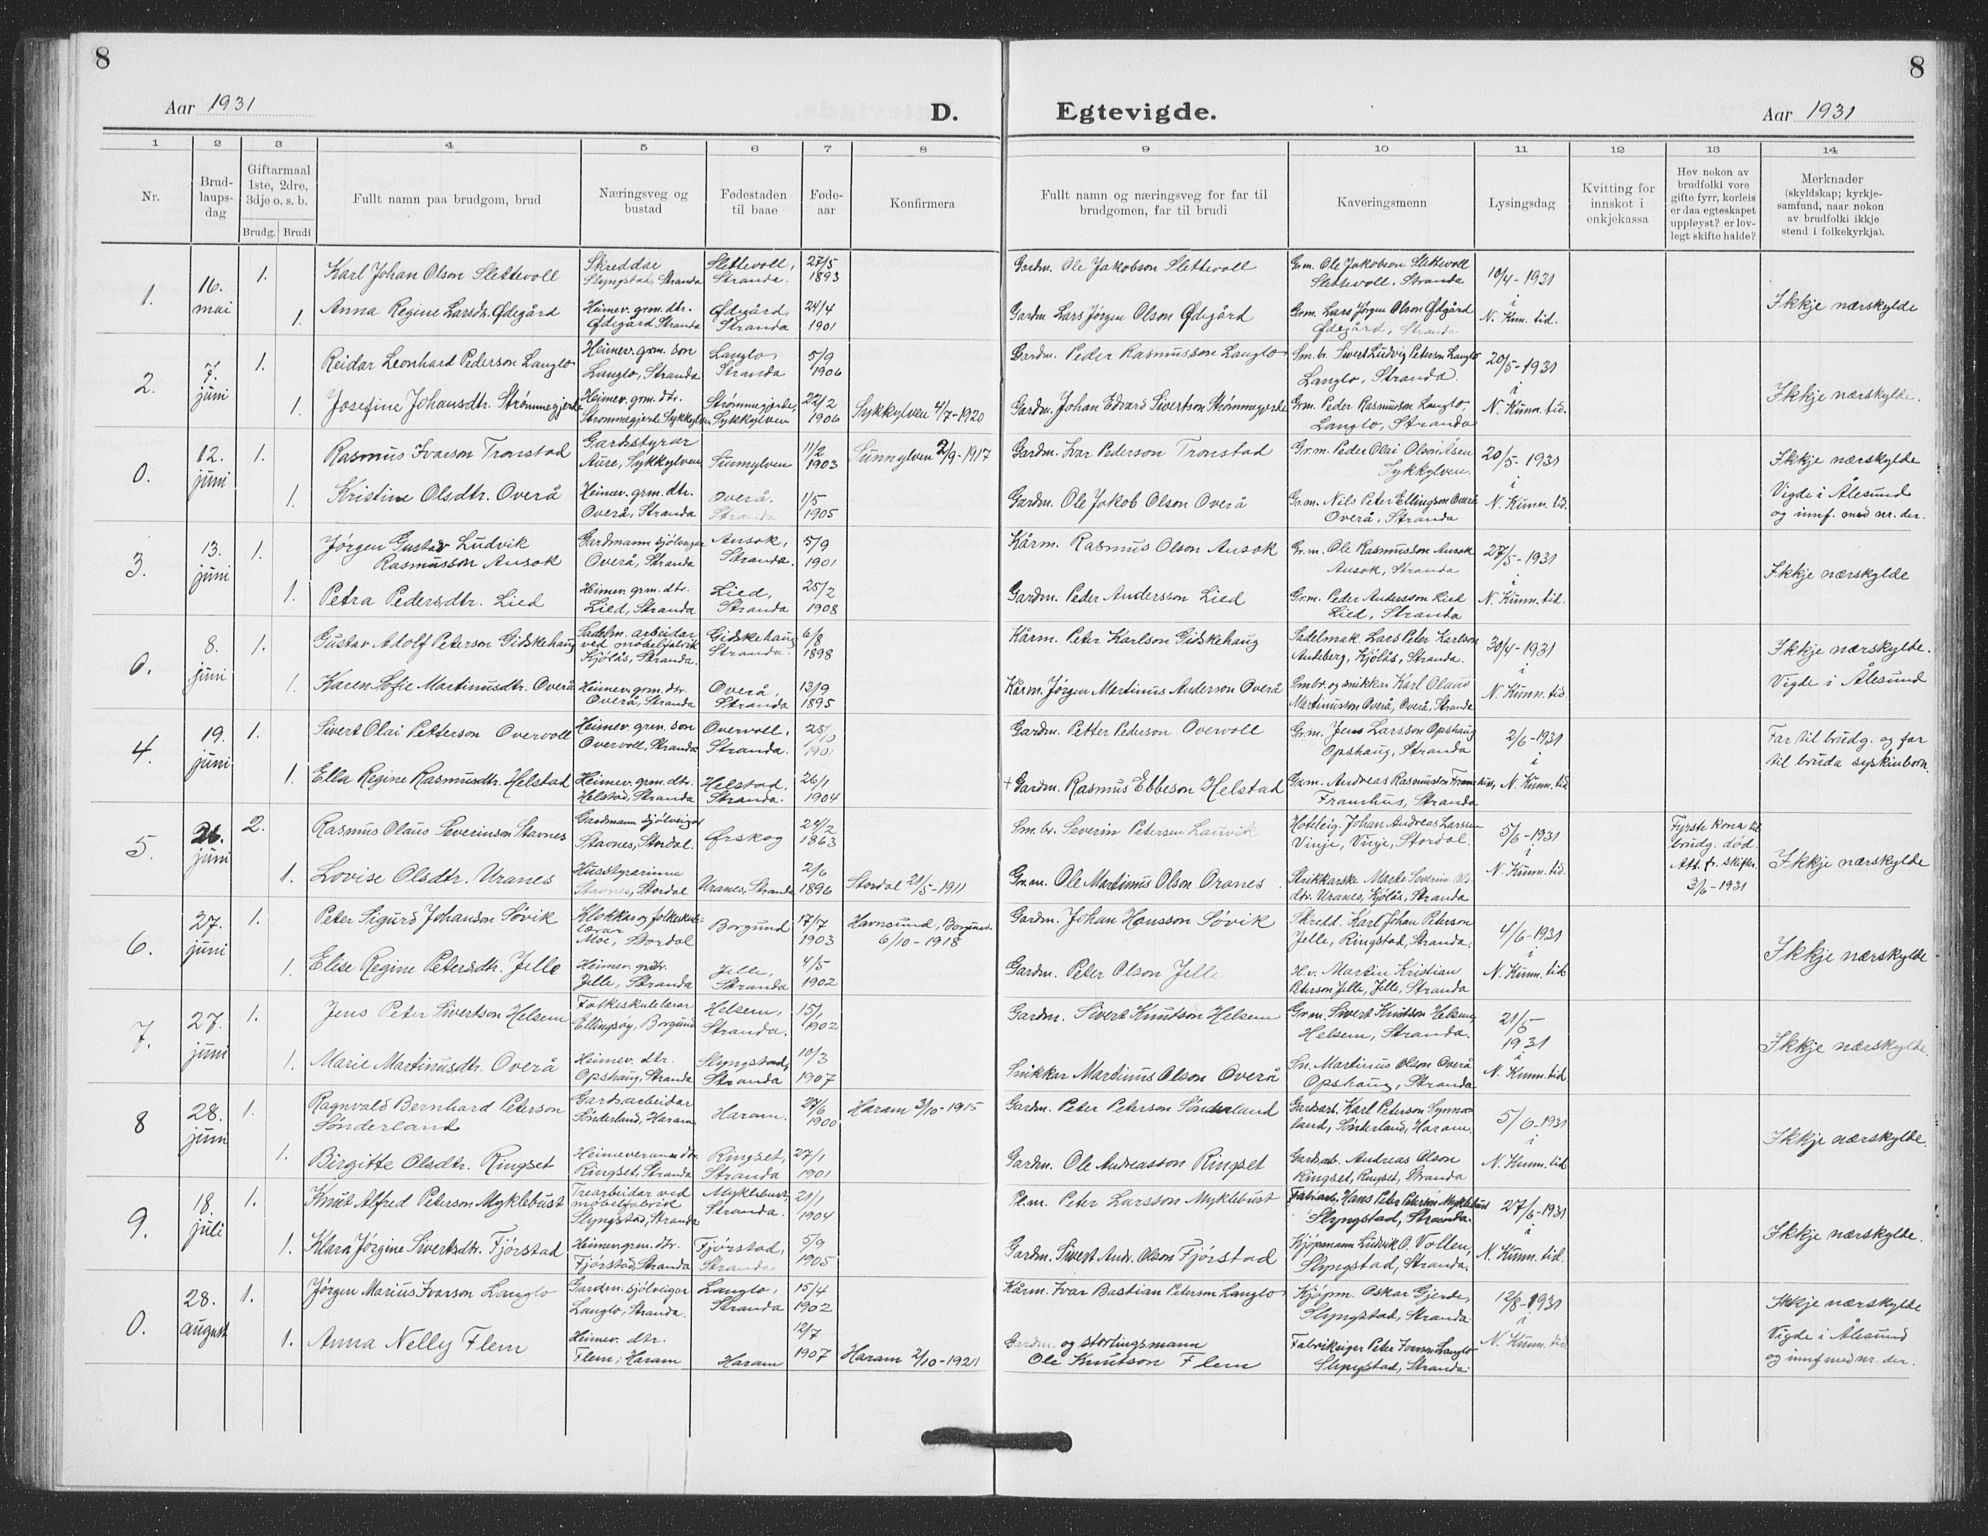 8
8
Aar 1931
D.
Egtevigde.
Aar 1931
1
2
3
4
5
6
7
8
9
10
11
12
13
14
Nr.
Brud-
laups-
dag
Giftarmaal
1ste, 2dre,
3dje o. s. b.
Brudg.
Brudi
Fullt namn paa brudgom, brud
Næringsveg og
bustad
Fødestaden
til baae
Føde-
aar
Konfirmera
Fullt namn og næringsveg for far til
brudgomen, far til brudi
Kaveringsmenn
Lysingsdag
Kvitting for
innskot i
enkjekassa
Hev nokon av
brudfolki vore
gifte fyrr, korleis
er daa egteskapet
uppløyst? er lov-
legt skifte halde?
Merknader
(skyldskap; kyrkje-
samfund, naar nokon
av brudfolki ikkje
stend i folkekyrkja).
1.
16.
mai
1.
Karl Johan Olson Slettevoll
Skreddar
Slyngstad, Stranda
Slettevoll,
Stranda.
27/5
1893
Gardm. Ole Jakobson Slettevoll
Grm. Ole Jakobson Slettevoll
Slettevoll, Stranda
10/4-1931
i
N. Kunn. tid.
Ikkje nærskylde
1.
Anna Regine Larsdtr. Ødegård
Heimev. grm. dtr.
Ødegård, Stranda
Ødegård,
Stranda
24/4
1901
Gardm Lars Jörgen Olson Ødegård
Grm. Lars Jörgen Olson Ødgård
Ødegård, Stranda
2.
7.
juni
1.
Reidar Leonhard Pederson Langlo
Heimev. grm. son
Langlo, Stranda
Langlo,
Stranda
5/9
1906
Gardm. Peder Rasmusson Langlo
Sm.br. Sivert Ludvig Peterson Langlo
Langlo, Stranda.
20/5-1931
i
N. Kunn. tid.
Ikkje nærskylde.
1.
Josefine Johansdtr. Strømmegjerde
Heimev. grm. dtr.
Strømmegjerde, Sykkylven
Strømmegjerde,
Sykkylven
22/2
1906
Sykkylven 4/7-1920
Gardm. Johan Edvard Sivertson Strømmegjerde
Grm. Peder Rasmusson Langlo,
Langlo, Stranda
0.
12.
juni
1.
Rasmus Ivarson Tronstad
Gardsstyrar
Aure, Sykkylven
Sunnylven
11/2
1903
Sunnylven 2/9-1917
Gardm. Ivar Pederson Tronstad
Gr.m. Peder Olai
Sykkylven.
20/5-1931
i
N. Kunn. tid.
Ikkje nærskylde
Vigde i Ålesund
og innf. med nr. der.
1.
Kristine Olsdtr. Overå
Heimev. grm. dtr.
Overå, Stranda
Overå,
Stranda
1/5
1905
Gardm. Ole Jakob Olson Overå
Gr.m. Nils Peter Ellingson Overå
Overå, Stranda
3.
13.
juni
1.
Jørgen Gustav Ludvik
Rasmusson Ansok
Gardmann sjölveigar
Overå, Stranda
Ansok,
Stranda.
5/9
1901
Kårm. Rasmus Olson Ansok
Gr.m. Ole Rasmusson Ansok
Ansok, Stranda
27/5-1931
i
N. Kunn. tid.
Ikkje nærskylde
1.
Petra Pedersdtr. Lied
Heimev. grm. dtr.
Lied, Stranda
Lied,
Stranda
25/2
1908
Gardm. Peder Andersson Lied
Gr.m. Peder Andersson Lied
Lied, Stranda
0.
8.
juni
1.
Gustav Adolf Peterson Gidskehaug
Sadelm. arbeidar
ved møbelfabrik
Kjølås, Stranda.
Gidskehaug
Stranda.
6/8
1898
Kårm. Peter Karlson Gidskehaug
Sadelmak. Lars Peter Karlson
Kjölås, Stranda.
30/4-1931
i
N. Kunn. tid.
Ikkje nærskylde.
Vigde i Ålesund
1.
Karen Sofie Martinusdtr. Overå
Heimev. grm. dtr.
Overå, Stranda
Overå,
Stranda
13/9
1895
Kårm. Jörgen Martinus Anderson Overå
Smbr. og snikkar Karl Olaus
Martinusson Overå, Overå, Stranda
4.
19.
juni
1.
Sivert Olai Petterson Overvoll
Heimev. grm. son
Overvoll, Stranda
Overvoll,
Stranda.
25/10
1901
Gardm. Petter Pederson Overvoll
Gr.m. Jens Larsson Opshaug
Opshaug, Stranda
2/6-1931
i
N. Kunn. tid
Far til brudg. og far
til bruda syskinborn.
1.
Ella Regine Rasmusdtr. Helstad
Heimev. grm. dtr.
Helstad, Stranda
Helstad,
Stranda.
26/1
1904
+ Gardm. Rasmus Ebbeson Helstad
Grm. Andreas Rasmusson Framhus,
Framhus, Stranda
5.
26.
juni
2.
Rasmus Olaus Severinson Stavnes
Gardmann sjölveigar
Stavnes, Stordal.
Ørskog
24/2
1863
Sm.br. Severin Peterson Lauvik
Hoteleig. Johan Andreas Larssen
Vinje, Vinje, Stordal.
5/6-1931
i
N. Kunn. tid.
Fyrste kona til
brudg. död.
Att. fr. skifter.
3/6-1931
Ikkje nærskylde
1.
Lovise Olsdtr. Uranes
Husstyrarinne
Stavnes, Stordal
Uranes, Stranda
2/6
1896
Stordal 21/5-1911
Gr.m. Ole Martinus Olson Oranes
Strikkarske Marte Severine Ols-
dtr. Uranes, Kjølås, Stranda
6.
27.
juni
1.
Peter Sigurd Johanson Søvik
Klokkar og folkeskule-
lærar
Moe, Stordal
Borgund
17/7
1903
Hamnsund, Borgund
6/10-1918
Gardm. Johan Hansson Søvik
Skredd. Karl Johan Peterson
Jelle, Ringstad, Stranda.
4/6-1931
i
N. Kunn. tid
Ikkje nærskylde
1.
Elise Regine Petersdtr. Jelle
Heimev. grdtr.
Jelle, Stranda
Jelle,
Stranda
4/5
1902
Gardm. Peter Olson Jelle
H.v. Martin Kristian
Peterson Jelle, Jelle, Stranda
7.
27.
juni
1.
Jens Peter Sivertson Helsem
Folkeskulelærar
Ellingsøy, Borgund
Helsem,
Stranda.
15/1
1902
Gardm. Sivert Knutson Helsem
Grm. Sivert Knutson Helsem,
Helsem, Stranda.
21/5
1931
i
N. Kunn. tid
Ikkje nærskylde.
1.
Marie Martinusdtr. Overå
Heimev. dtr.
Opshaug, Stranda
Slyngstad,
Stranda
10/3
1907
Snikkar Martinus Olson Overå
Sn. Martinus Olson Overå
Opshaug, Stranda
8
28.
juni
1.
Ragnvald Bernhard Peterson
Sönderland
Gardsarbeidar
Sönderland, Haram
Haram.
27/6
1900
Haram 3/10-1915
Gardm. Peter Peterson Sönderland
Gardsarb. Karl Peterson Synna-
land, Sönderland, Haram.
5/6-1931
i
N. Kunn. tid.
Ikkje nærskylde.
1.
Birgitte Olsdtr. Ringset
Heimeverande dtr.
Ringset, Stranda
Ringset,
Stranda
27/1
1901
Gardm. Ole Andreasson Ringset
Gardsarb. Andreas Olson
Ringset, Ringset, Stranda
9.
18.
juli
1.
Knut Alfred Peterson Myklebust
Trearbeidar ved
møbelfabrik
Slyngstad, Stranda
Myklebust,
Stranda.
21/1
1904
Pl.m. Peter Larsson Myklebust
Fabrarb. Hans Peter Peterson Myklebust
Slyngstad, Stranda.
27/6-1931
i
N. Kunn. tid.
Ikkje nærskylde.
1.
Klara Jörgine Sivertsdtr. Fjörstad
Heimev. grm. dtr.
Fjörstad, Stranda
Fjörstad,
Stranda
5/9
1905
Gardm. Sivert And. Olson Fjörstad
Kjöpmann Ludvik O. Vollen,
Slyngstad, Stranda.
0.
28.
august
1.
Jörgen Marius Ivarson Langlo
Gardm. sjölveigar
Langlo, Stranda.
Langlo,
Stranda
15/4
1902
Kårm. Ivar Bastian Peterson Langlo
Kjöpm. Oskar Gjerde,
Slyngstad, Stranda.
12/8-1931
i
N. Kunn. tid
Ikkje nærskylde
Vigde i Ålesund
og innf med nr. der.
1.
Anna Nelly Flem
Heimev. dtr.
Flem, Haram
Haram
12/7
1907
Haram 2/10-1921
Gardm. og stortingsmann
Ole Knutson Flem
Fabrikeigar Peter Ivarson Langlo
Slyngstad, Stranda.